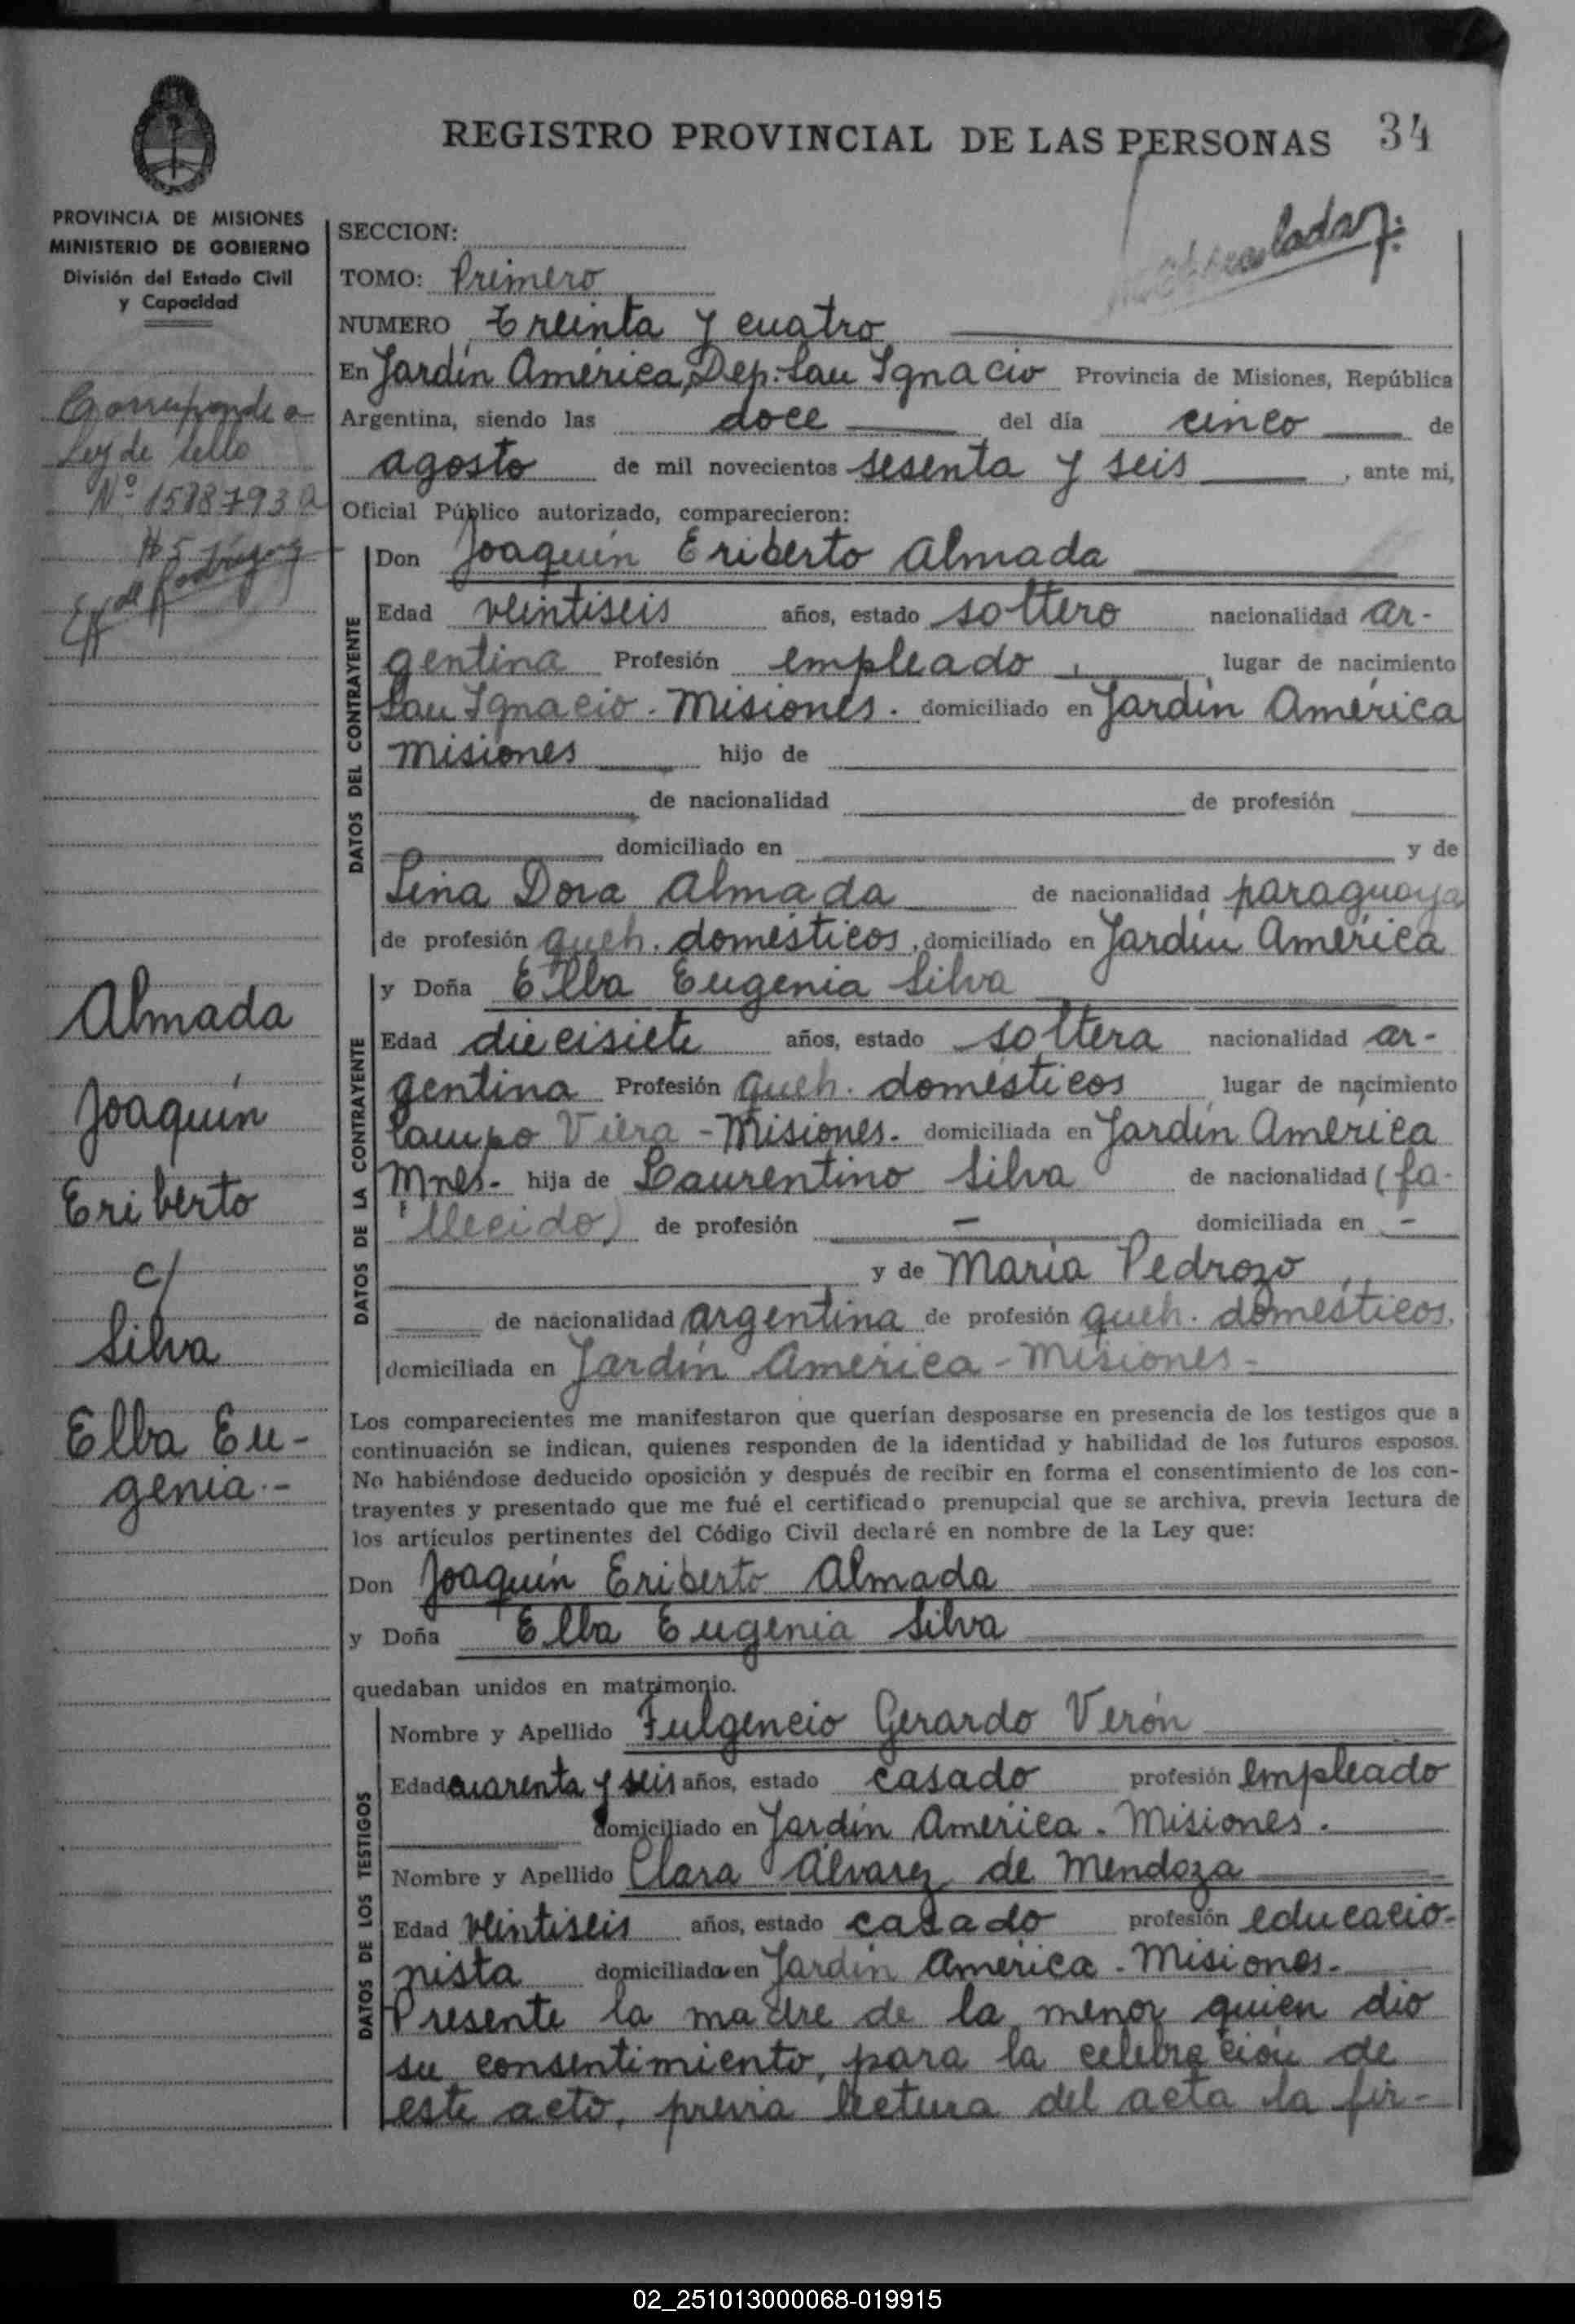 REGISTRO PROVINCIAL DE LAS PERSONAS 34
PROVINCIA DE MISIONES
MINISTERIO DE GOBIERNO
División del Estado Civil
y Capacidad
Corresponde a
Ley de sello
Nº 1588793 a
Almada
Joaquín
Eriberto
c/
Silva
Elba Eu-
genia.-
SECCION:
TOMO: Primero
NUMERO Treinta y cuatro
En Jardín América, Dep. San Ignacio Provincia de Misiones, República
Argentina, siendo las doce del día cinco de
agosto de mil novecientos sesenta y seis, ante mi,
Oficial Público autorizado, comparecieron:
DATOS DEL CONTRAYENTE
Don Joaquín Eriberto Almada
Edad veintiseis años, estado soltero nacionalidad ar-
gentina Profesión empleado, lugar de nacimiento
San Ignacio. Misiones. domiciliado en Jardín América
Misiones hijo de
de nacionalidad de profesión
domiciliado en y de
Lina Dora Almada de nacionalidad paraguaya
de profesión queh. domésticos, domiciliado en Jardín América
DATOS DE LA CONTRAYENTE
y Doña Elba Eugenia Silva
Edad diecisiete años, estado soltera nacionalidad ar-
gentina Profesión queh. domésticos, lugar de nacimiento
Campo Viera - Misiones. domiciliada en Jardín América
Mnes. hija de Laurentino Silva de nacionalidad (fa-
llecido) de profesión - domiciliada en -
y de María Pedrozo
de nacionalidad argentina de profesión queh. domésticos.
domiciliada en Jardín América - Misiones -
Los comparecientes me manifestaron que querían desposarse en presencia de los testigos que a
continuación se indican, quienes responden de la identidad y habilidad de los futuros esposos.
No habiéndose deducido oposición y después de recibir en forma el consentimiento de los con-
trayentes y presentado que me fué el certificado prenupcial que se archiva, previa lectura de
los artículos pertinentes del Código Civil declaré en nombre de la Ley que:
Don Joaquín Eriberto Almada
y Doña Elba Eugenia Silva
quedaban unidos en matrimonio.
DATOS DE LOS TESTIGOS
Nombre y Apellido Fulgencio Gerardo Verón
Edad cuarenta y seis años, estado casado profesión empleado
domiciliado en Jardín América. Misiones.
Nombre y Apellido Clara Alvarez de Mendoza
Edad veintiseis años, estado casado profesión educacio-
nista domiciliada en Jardín América. Misiones.
Presente la madre de la menor quien dio
su consentimiento, para la celebración de
este acto, previa lectura del acta la fir-
02_251013000068-019915